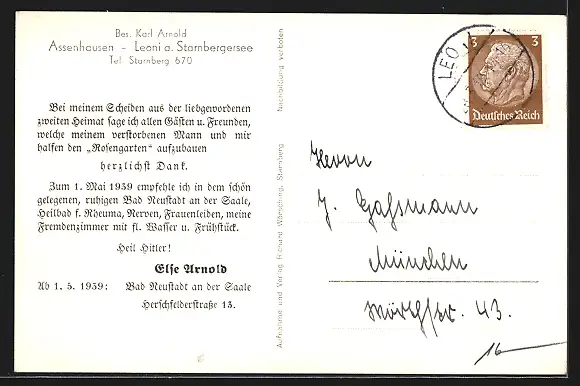 Bes. Karl Arnold
Assenhausen – Leoni a. Starnbergersee
Tel. Starnberg 670
Bei meinem Scheiden aus der liebgewordenen
zweiten Heimat sage ich allen Gästen u. Freunden,
welche meinem verstorbenen Mann und mir
halfen den „Rosengarten" aufzubauen
herzlichst Dank.
Zum 1. Mai 1939 empfehle ich in dem schön
gelegenen, ruhigen Bad Neustadt an der Saale,
Heilbad f. Rheuma, Nerven, Frauenleiden, meine
Fremdenzimmer mit fl. Wasser u. Frühstück.
Heil Hitler!
Else Arnold
Ab 1. 5. 1939: Bad Neustadt an der Saale
Herschfelderstraße 13.
Aufnahme und Verlag Richard Wörsching, Starnberg
Nachbildung verboten
LEO
3 3
Deutsches Reich
Herrn
J. Gassmann
München
Wörthstr. 43.
16